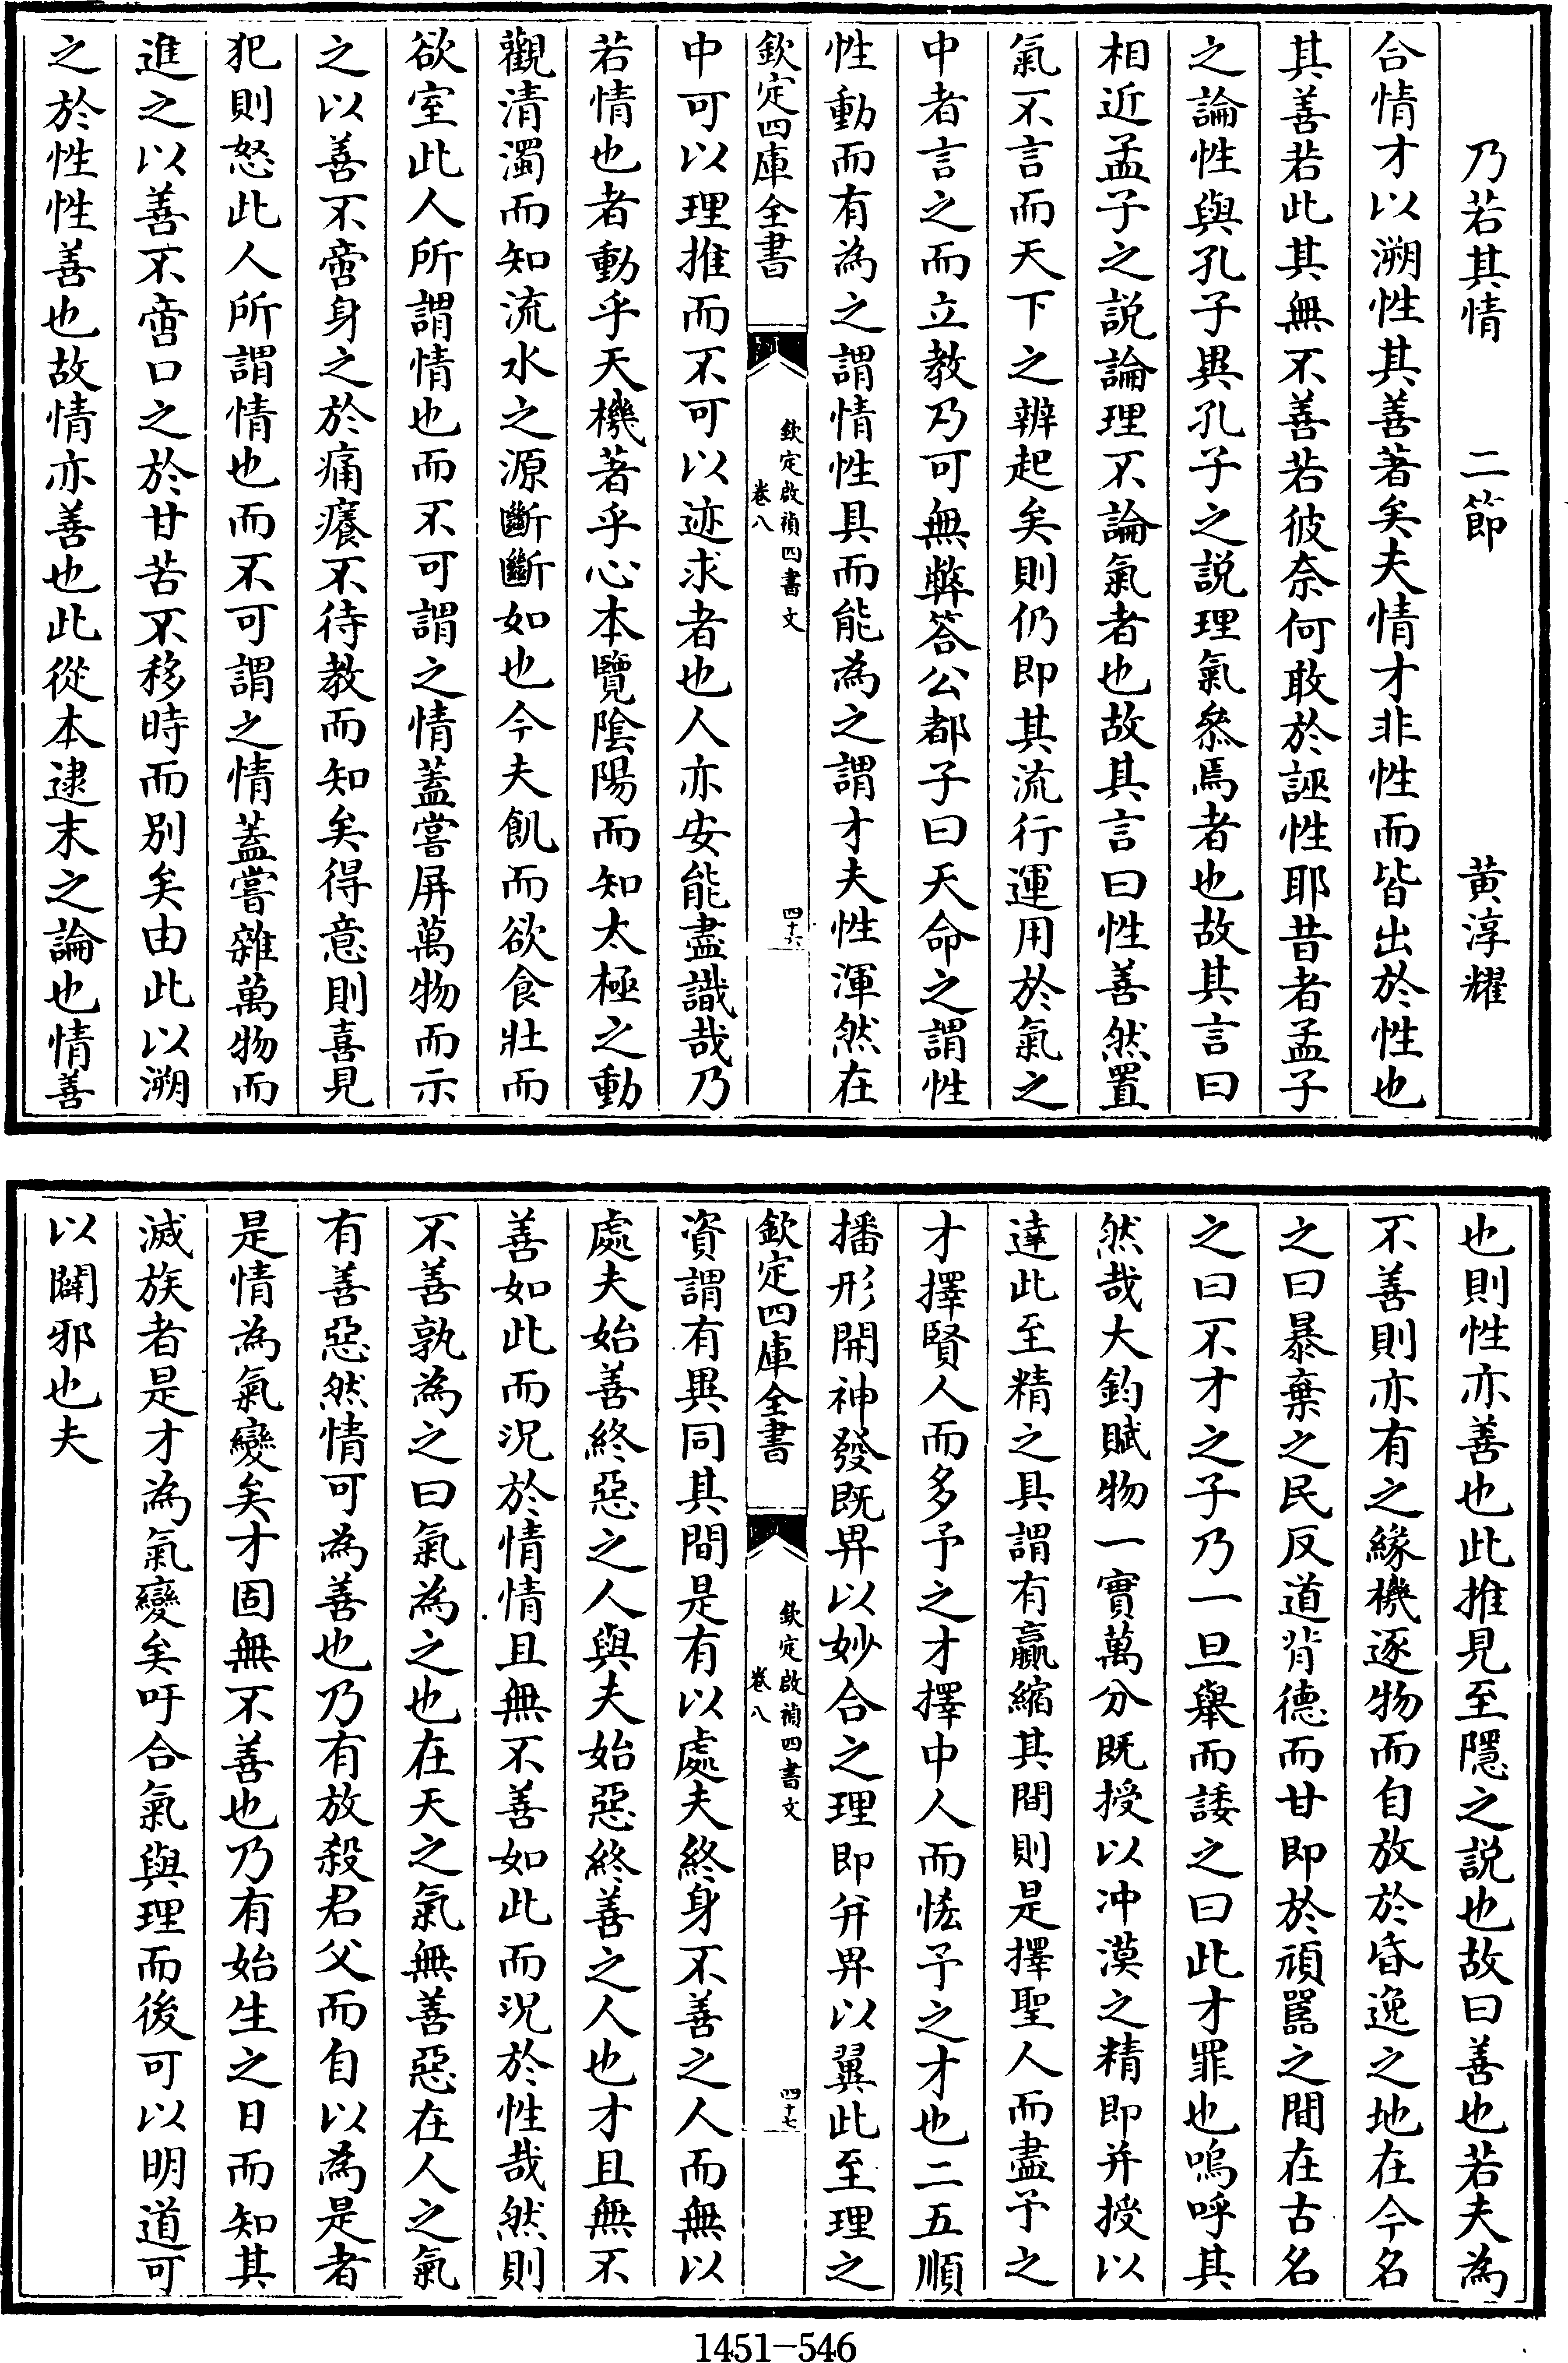 乃若其情　二節　黄淳耀
合情才以溯性其善著矣夫情才非性而皆出於性也
其善若此其無不善若彼奈何敢於誣性耶昔者孟子
之論性與孔子異孔子之説理氣叅焉者也故其言曰
相近孟子之説論理不論氣者也故其言曰性善然置
氣不言而天下之辨起矣則仍即其流行運用於氣之
中者言之而立教乃可無弊答公都子曰天命之謂性
性動而有為之謂情性具而能為之謂才夫性渾然在
欽定四庫全書
欽定啟禎四書文
卷八
四十六
中可以理推而不可以迹求者也人亦安能盡識哉乃
若情也者動乎天機著乎心本覽陰陽而知太極之動
觀清濁而知流水之源斷斷如也今夫飢而欲食壯而
欲室此人所謂情也而不可謂之情蓋嘗屏萬物而示
之以善不啻身之於痛癢不待教而知矣得意則喜見
犯則怒此人所謂情也而不可謂之情蓋嘗雜萬物而
進之以善不啻口之於甘苦不移時而别矣由此以溯
之於性性善也故情亦善也此從本逮末之論也情善
也則性亦善也此推見至隱之説也故曰善也若夫為
不善則亦有之緣機逐物而自放於昏逸之地在今名
之曰暴棄之民反道背德而甘即於頑嚚之間在古名
之曰不才之子乃一旦舉而諉之曰此才罪也嗚呼其
然哉大鈞賦物一實萬分既授以冲漠之精即并授以
達此至精之具謂有贏縮其間則是擇聖人而盡予之
才擇賢人而多予之才擇中人而恡予之才也二五順
播形開神發既畀以妙合之理即并畀以翼此至理之
欽定四庫全書
欽定啟禎四書文
卷八
四十七
資謂有異同其間是有以處夫終身不善之人而無以
處夫始善終惡之人與夫始惡終善之人也才且無不
善如此而況於情情且無不善如此而況於性哉然則
不善孰為之曰氣為之也在天之氣無善惡在人之氣
有善惡然情可為善也乃有放殺君父而自以為是者
是情為氣變矣才固無不善也乃有始生之日而知其
滅族者是才為氣變矣吁合氣與理而後可以明道可
以闢邪也夫
1451-546